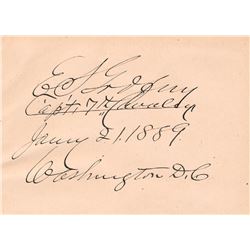 E S Godfrey
Capt 7th Cavalry
Jany 21. 1889.
Washington D.C